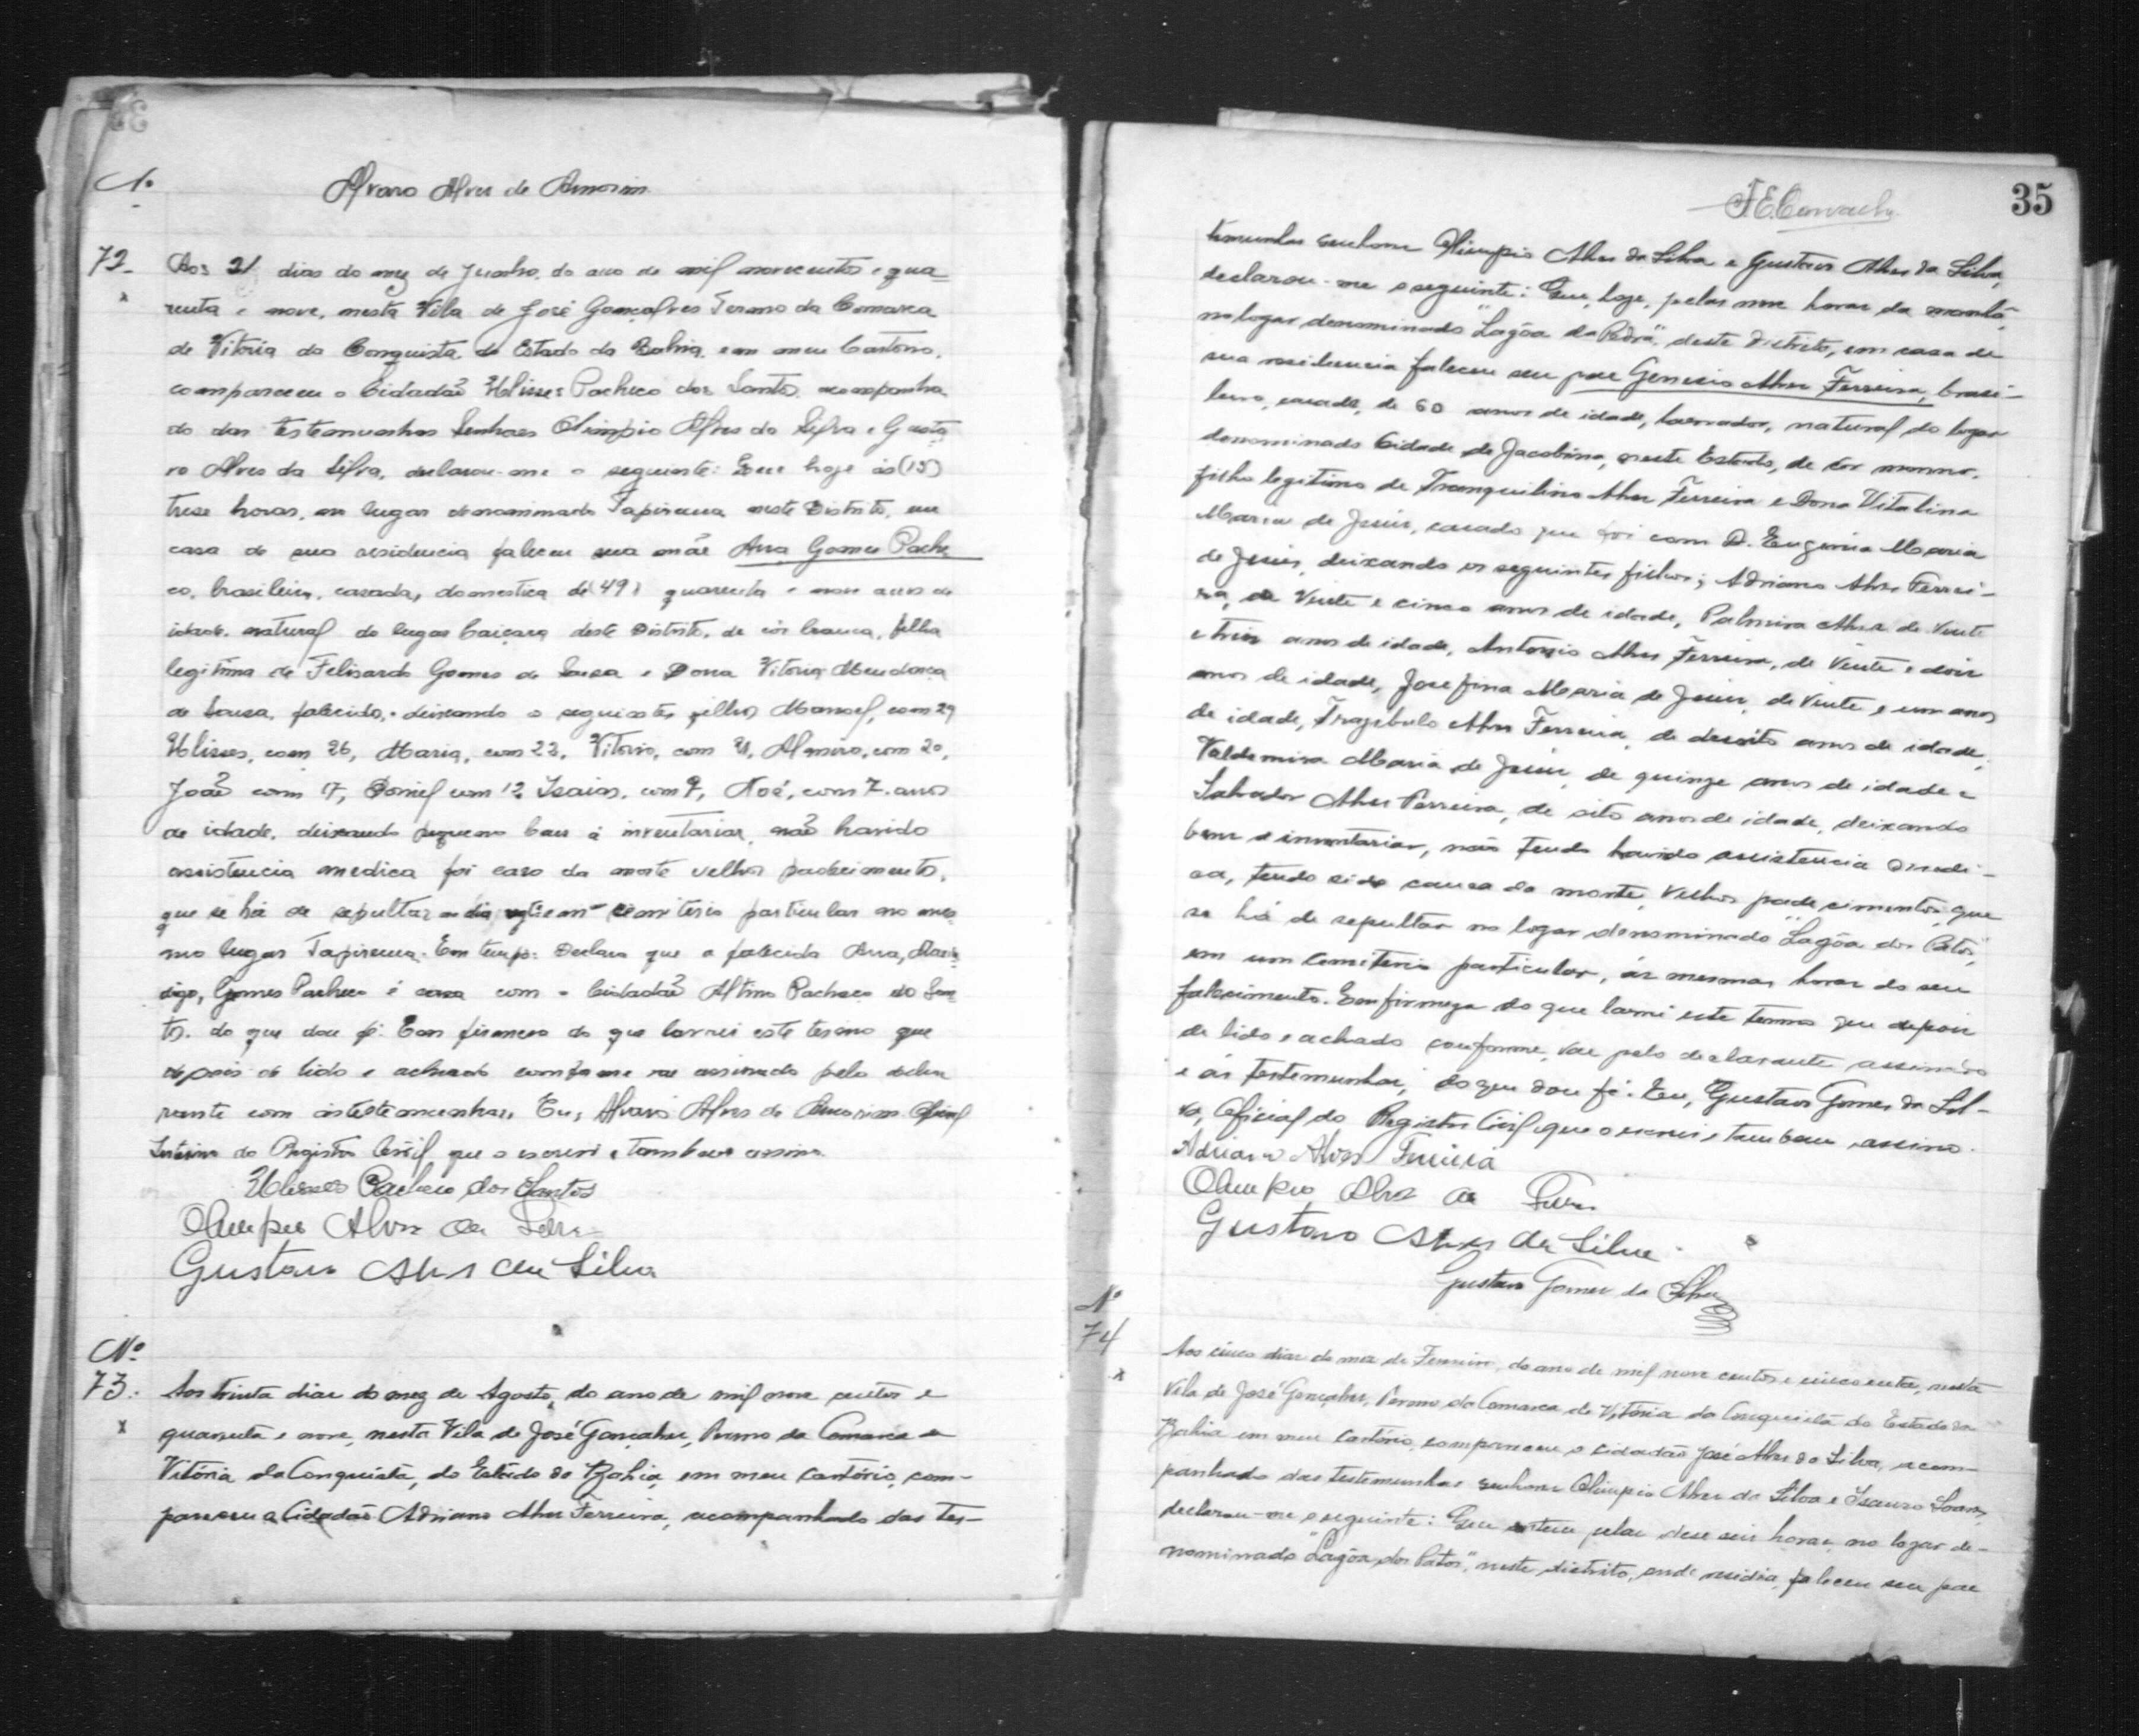 Nº
Alvaro Alves de Amorim
72- Aos 21 dias do mez de Junho, do ano de mil novecentos e qua-
renta e nove, nesta Vila de José Gonçalves Termo da Comarca
de Vitória da Conquista, do Estado da Bahia, em meu Cartorio,
compareceu o Cidadaõ Ulisses Pacheco dos Santos, acompanha
do das testemunhas Senhores Olimpio Alves da Silva e Gusta
vo Alves da Silva, declarou-me o seguinte: Que hoje ás (13)
trese horas, no lugar denominado Tapirema neste Distrito, em
casa de sua residencia faleceu sua mãe Ana Gomes Pache
co, brasileira, casada, domestica de (49) quarenta e nove anos de
idade, natural do lugar Caiçara deste Distrito, de côr branca, filha
legitima de Felisardo Gomes de Sousa e Dona Vitoria Mendonça
de Sousa, falecido, deixando o seguintes filhos Manoel, com 29
Ulisses, com 26, Maria, com 23, Vitorio, com 21, Almiro, com 20,
Joaõ com 17, Daniel com 12 Isaias, com 9, Noé, com 7 anos
de idade, deixando pequeno bens á inventariar, naõ havido
assistencia medica foi caso da morte velhos padecimento,
que se há de sepultar em Cemiterio particular no mes-
mo lugar Tapirema. Em tempo: Declaro que a falecida Ana,
digo, Gomes Pacheco é casa com o Cidadaõ Altino Pacheco do San
tos. do que dou fé. Em firmesa do que lavrei este termo que
depois de lido e achado conforme vae assinado pelo decla
rante com ás testemunhas, Eu, Alvaro Alves de Amorim Oficial
Interino do Registro Civil que o escrevi e tambem assino.
Ulisses Pacheco dos Santos
Olimpio Alves da Silva
Gustavo Alves da Silva
Nº
73. Aos trinta dias do mez de Agosto, do ano de mil nove centos e
quarenta e nove, nesta Vila de José Gonçalves, Termo da Comarca de
Vitória da Conquista, do Estado da Bahia, em meu cartório, com-
pareceu o Cidadão Adriano Alves Ferreira, acompanhado das tes-
35
temunhas senhores Olimpio Alves da Silva e Gustavo Alves da Silva,
declarou-me o seguinte: Que, hoje, pelas nove horas da manhã,
no logar denominado "Lagôa da Pedra", deste Distrito, em casa de
sua residencia faleceu seu pae Genesio Alves Ferreira, brasi-
leiro, casado, de 60 anos de idade, lavrador, natural do logar
denominado Cidade de Jacobina, neste Estado, de côr morena,
filho legitimo de Tranquilino Alves Ferreira e Dona Vitalina
Maria de Jesús, casado que foi com D. Eugenia Maria
de Jesús, deixando os seguintes filhos; Adriano Alves Ferrei-
ra, de Vinte e cinco anos de idade, Palmira Alves de Vinte
e trêis anos de idade, Antonio Alves Ferreira, de Vinte e dois
anos de idade, Josefina Maria de Jesús, de Vinte e um anos
de idade, Trazibulo Alves Ferreira, de desoito anos de idade,
Valdemira Maria de Jesús, de quinze anos de idade e
Salvador Alves Ferreira, de oito anos de idade, deixando
bens a inventariar, não tendo havido assistencia medi-
ca, tendo sido causa da morte, Velhos padecimentos, que
se há de sepultar no logar denominado "Lagôa dos Patos",
em um cemiterio particular, ás mesmas horas do seu
falecimento. Em firmeza do que lavrei este termo que depois
de lido e achado conforme, vae pelo declarante assinado
e ás testemunhas, do que dou fé. Eu, Gustavo Gomes da Sil-
va, Oficial do Registro Civil que o escrevi e tambem assino.
Adriano Alves Ferreira
Olimpio Alves da Silva
Gustavo Alves da Silva
Gustavo Gomes da Silva
Nº
74 Aos cinco dias do mez de Fevereiro, do ano de mil nove centos e cincoenta, nesta
Vila de José Gonçalves, Termo da Comarca de Vitória da Conquista do Estado da
Bahia em meu cartório, compareceu o cidadão José Alves da Silva, acom-
panhado das testemunhas senhores Olimpio Alves da Silva e Isauro Soares,
declarou-me o seguinte: Que ontem pelas dese seis horas, no logar de-
nominado "Lagôa dos Patos," neste distrito, onde residia, faleceu seu pae